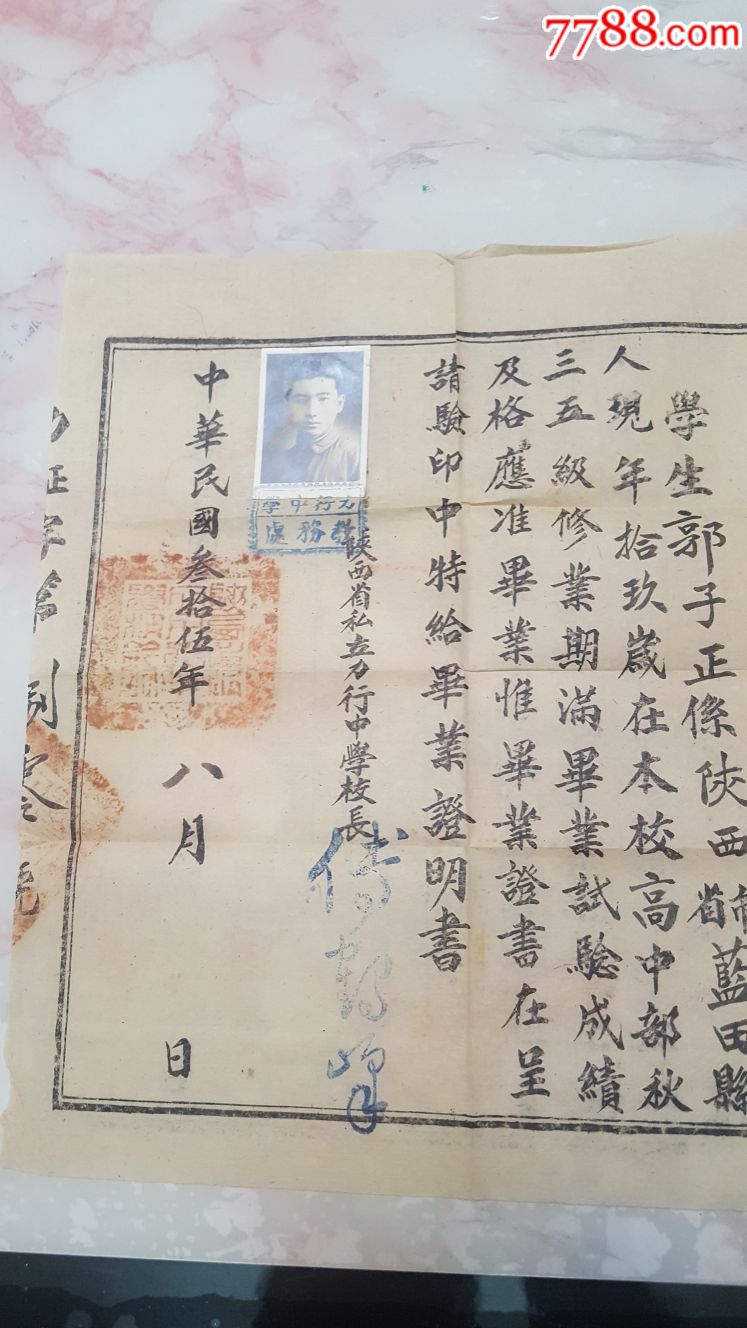 7788.com
學生郭子正係陝西省市藍田縣
人現年拾玖歲在本校高中部秋
三五級修業期滿畢業試驗成績
及格應准畢業惟畢業證書在呈
請驗印中特給畢業證明書
力行中學
教務處
陝西省私立力行中學校長
傅鶴峰
中華民國叁拾伍年
八月
日